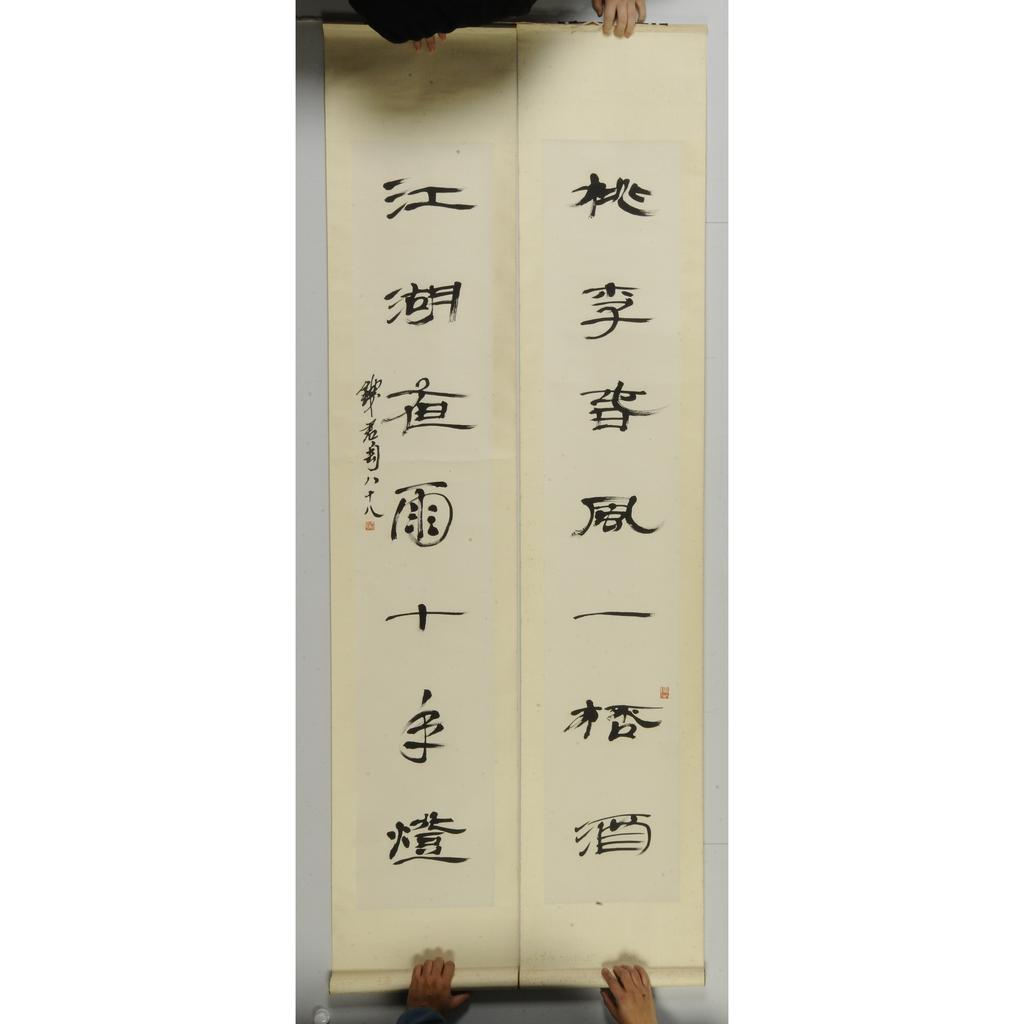 桃李春風一桮酒
江湖夜雨十年燈
錢君匋八十八